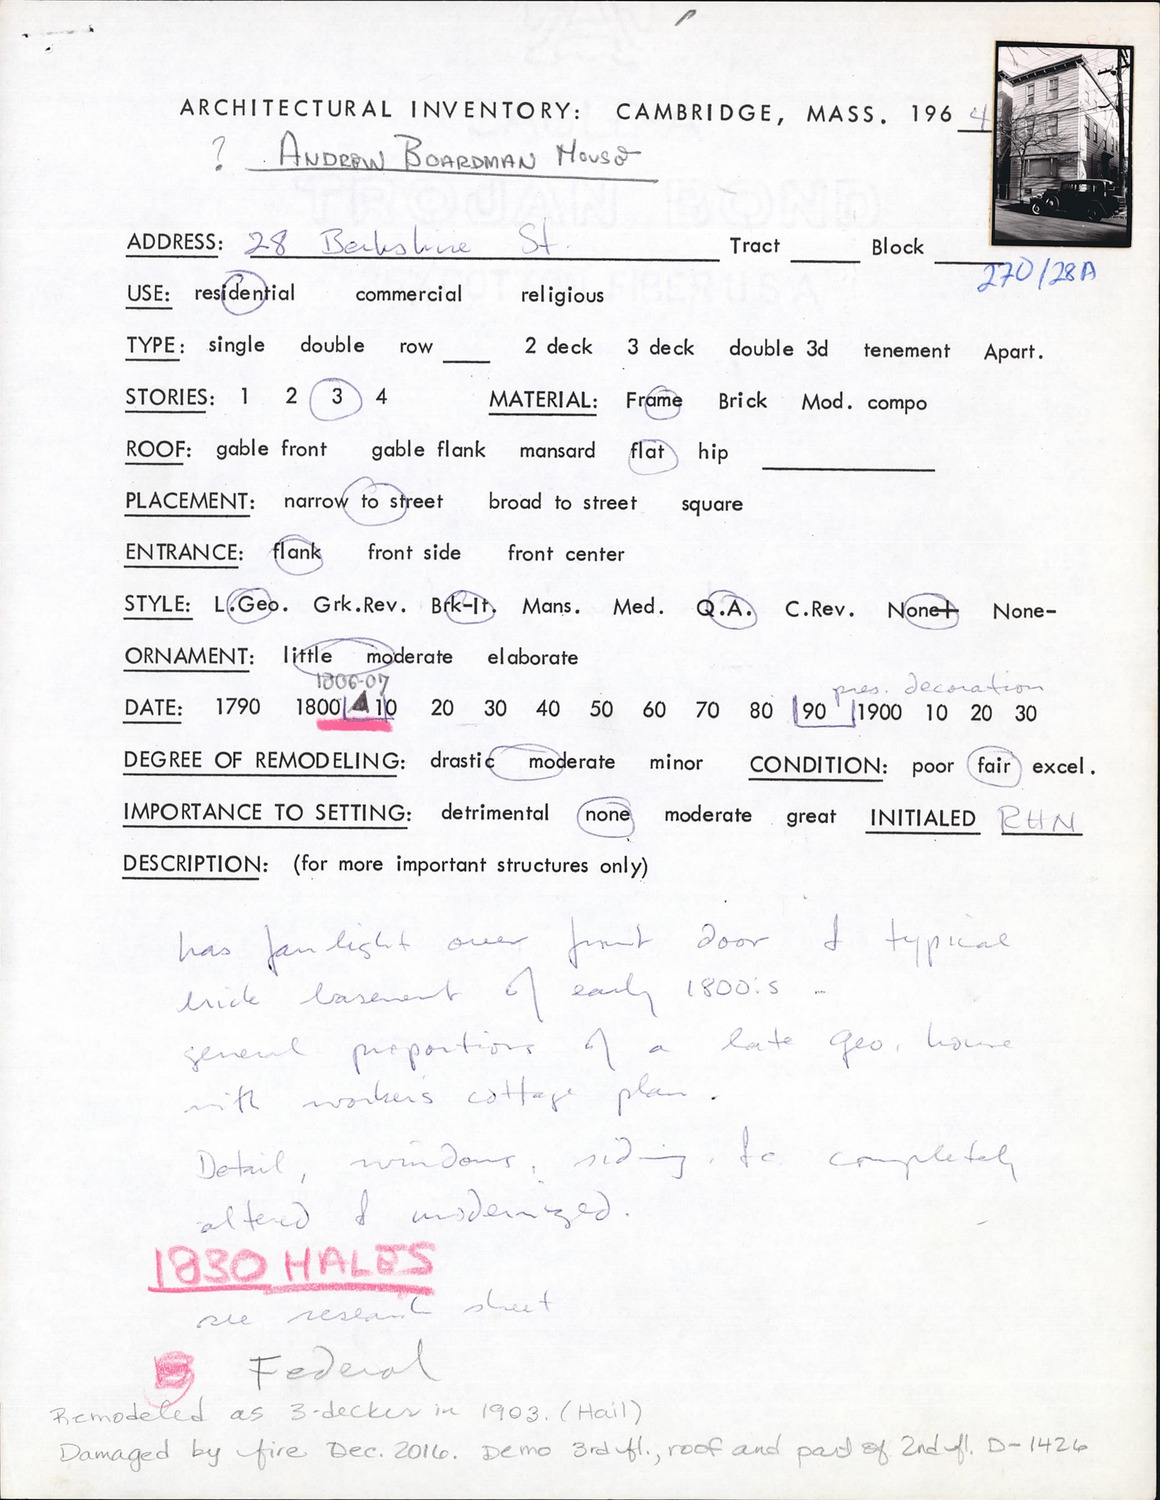 ARCHITECTURAL INVENTORY: CAMBRIDGE, MASS. 196 4
? ANDREW BOARDMAN HOUSE
ADDRESS: 28 Berkshire St. Tract ____ Block ____
270/28A
USE: residential commercial religious
TYPE: single double row ____ 2 deck 3 deck double 3d tenement Apart.
STORIES: 1 2 3 4 MATERIAL: Frame Brick Mod. compo
ROOF: gable front gable flank mansard flat hip ____
PLACEMENT: narrow to street broad to street square
ENTRANCE: flank front side front center
STYLE: L.Geo. Grk.Rev. Brk-It. Mans. Med. Q.A. C.Rev. None+ None-
ORNAMENT: little moderate elaborate
1806-07 pres. decoration
DATE: 1790 1800 10 20 30 40 50 60 70 80 90 1900 10 20 30
DEGREE OF REMODELING: drastic moderate minor CONDITION: poor fair excel.
IMPORTANCE TO SETTING: detrimental none moderate great INITIALED RHN
DESCRIPTION: (for more important structures only)
has fan light over front door & typical
brick basement of early 1800's -
general proportions of a late geo. house
with workers cottage plan.
Detail, windows, siding, &c completely
altered & modernized.
1830 HALES
see research sheet
B Federal
Remodeled as 3-decker in 1903. (Hail)
Damaged by fire Dec. 2016. Demo 3rd fl., roof and part of 2nd fl. D-1426